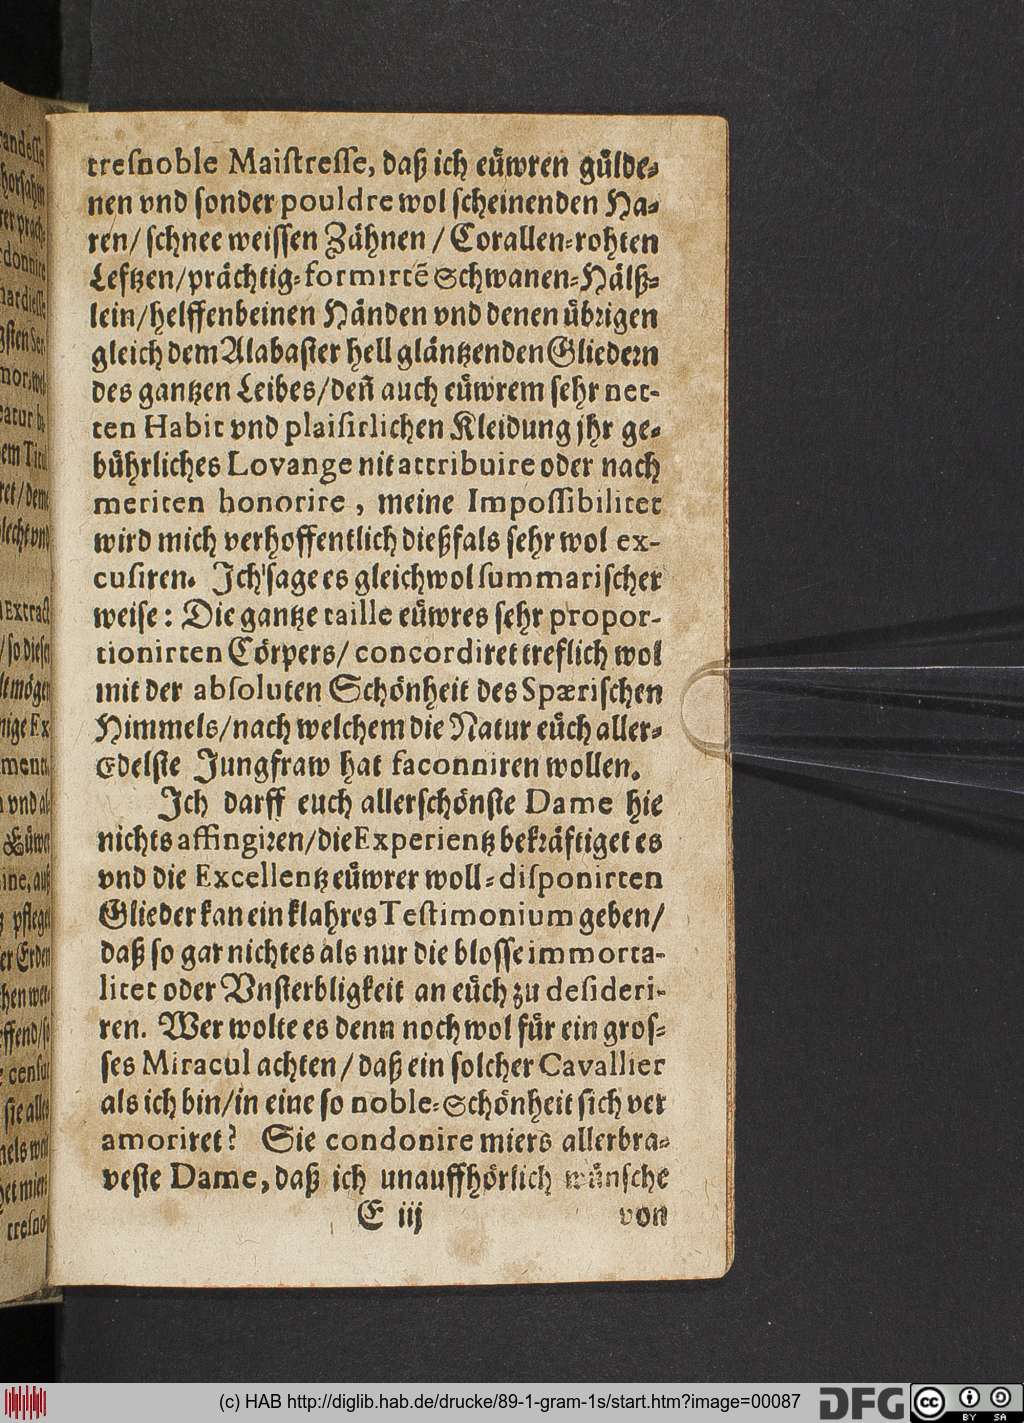 tresnoble Maistresse, daß ich eüwren gülde-
nen vnd sonder pouldre wol scheinenden Ha-
ren/ schnee weissen Zähnen / Corallen-rohten
Leftzen/prächtig-formirtẽ Schwanen-Hälß-
lein/helffenbeinen Händen vnd denen übrigen
gleich dem Alabaster hell gläntzenden Gliedern
des gantzen Leibes/deñ auch eüwrem sehr net-
ten Habit vnd plaisirlichen Kleidung jhr ge-
bührliches Lovange nit attribuire oder nach
meriten honorire , meine Impossibilitet
wird mich verhoffentlich dießfals sehr wol ex-
cusiren. Jch sage es gleichwol summarischer
weise: Die gantze taille eüwres sehr propor-
tionirten Cörpers/ concordiret treflich wol
mit der absoluten Schönheit des Spærischen
Himmels/nach welchem die Natur eüch aller-
Edelste Jungfraw hat faconniren wollen.
Jch darff euch allerschönste Dame hie
nichts affingiren/die Experientz bekräftiget es
vnd die Excellentz eüwrer woll-disponirten
Glieder kan ein klahres Testimonium geben/
daß so gar nichtes als nur die blosse immorta-
litet oder Vnsterbligkeit an eüch zu desideri-
ren. Wer wolte es denn noch wol für ein gros-
ses Miracul achten / daß ein solcher Cavallier
als ich bin/in eine so noble-Schönheit sich ver
amoriret? Sie condonire miers allerbra-
veste Dame, daß ich unauffhörlich wünsche
E iij von
(c) HAB http://diglib.hab.de/drucke/89-1-gram-1s/start.htm?image=00087
DFG
cc BY SA